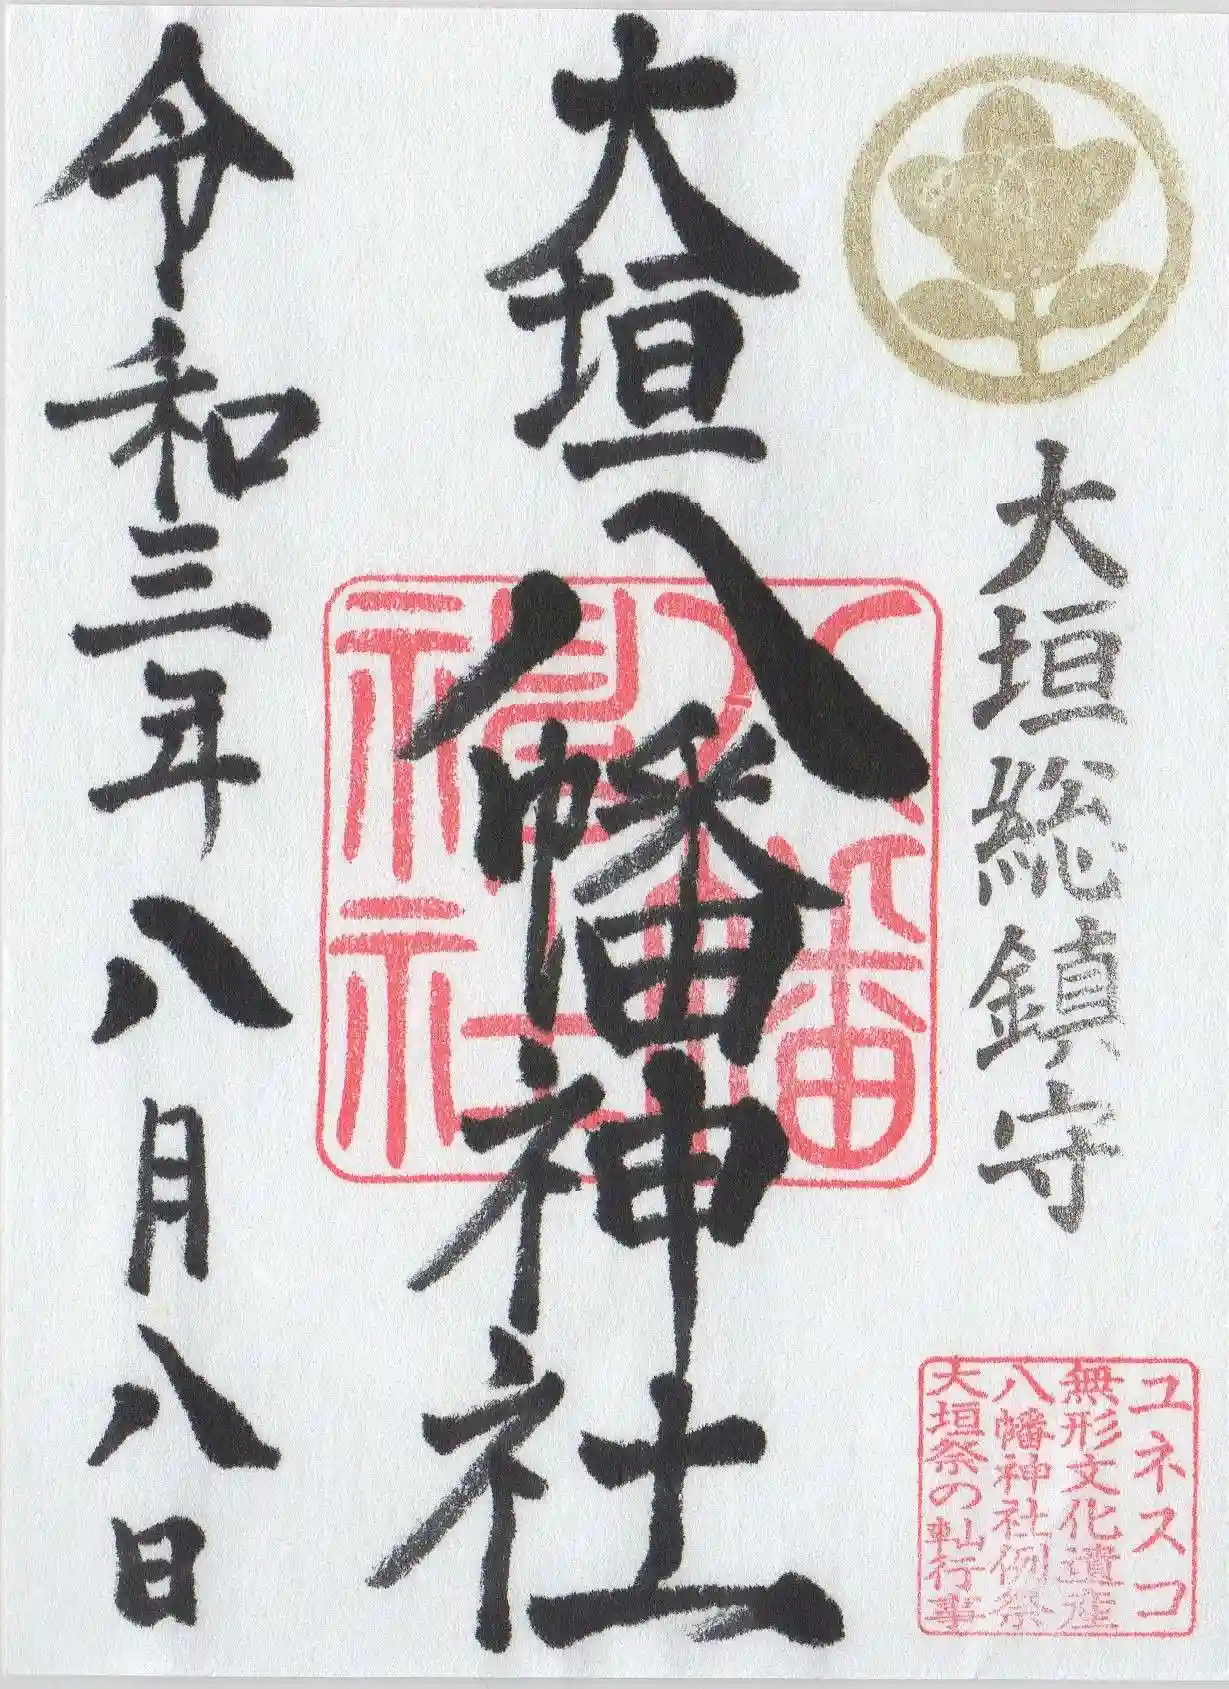 大垣総鎮守
ユネスコ
無形文化遺産
八幡神社例祭
大垣祭の軕行事
大垣八幡神社
八幡
神社
令和三年八月八日